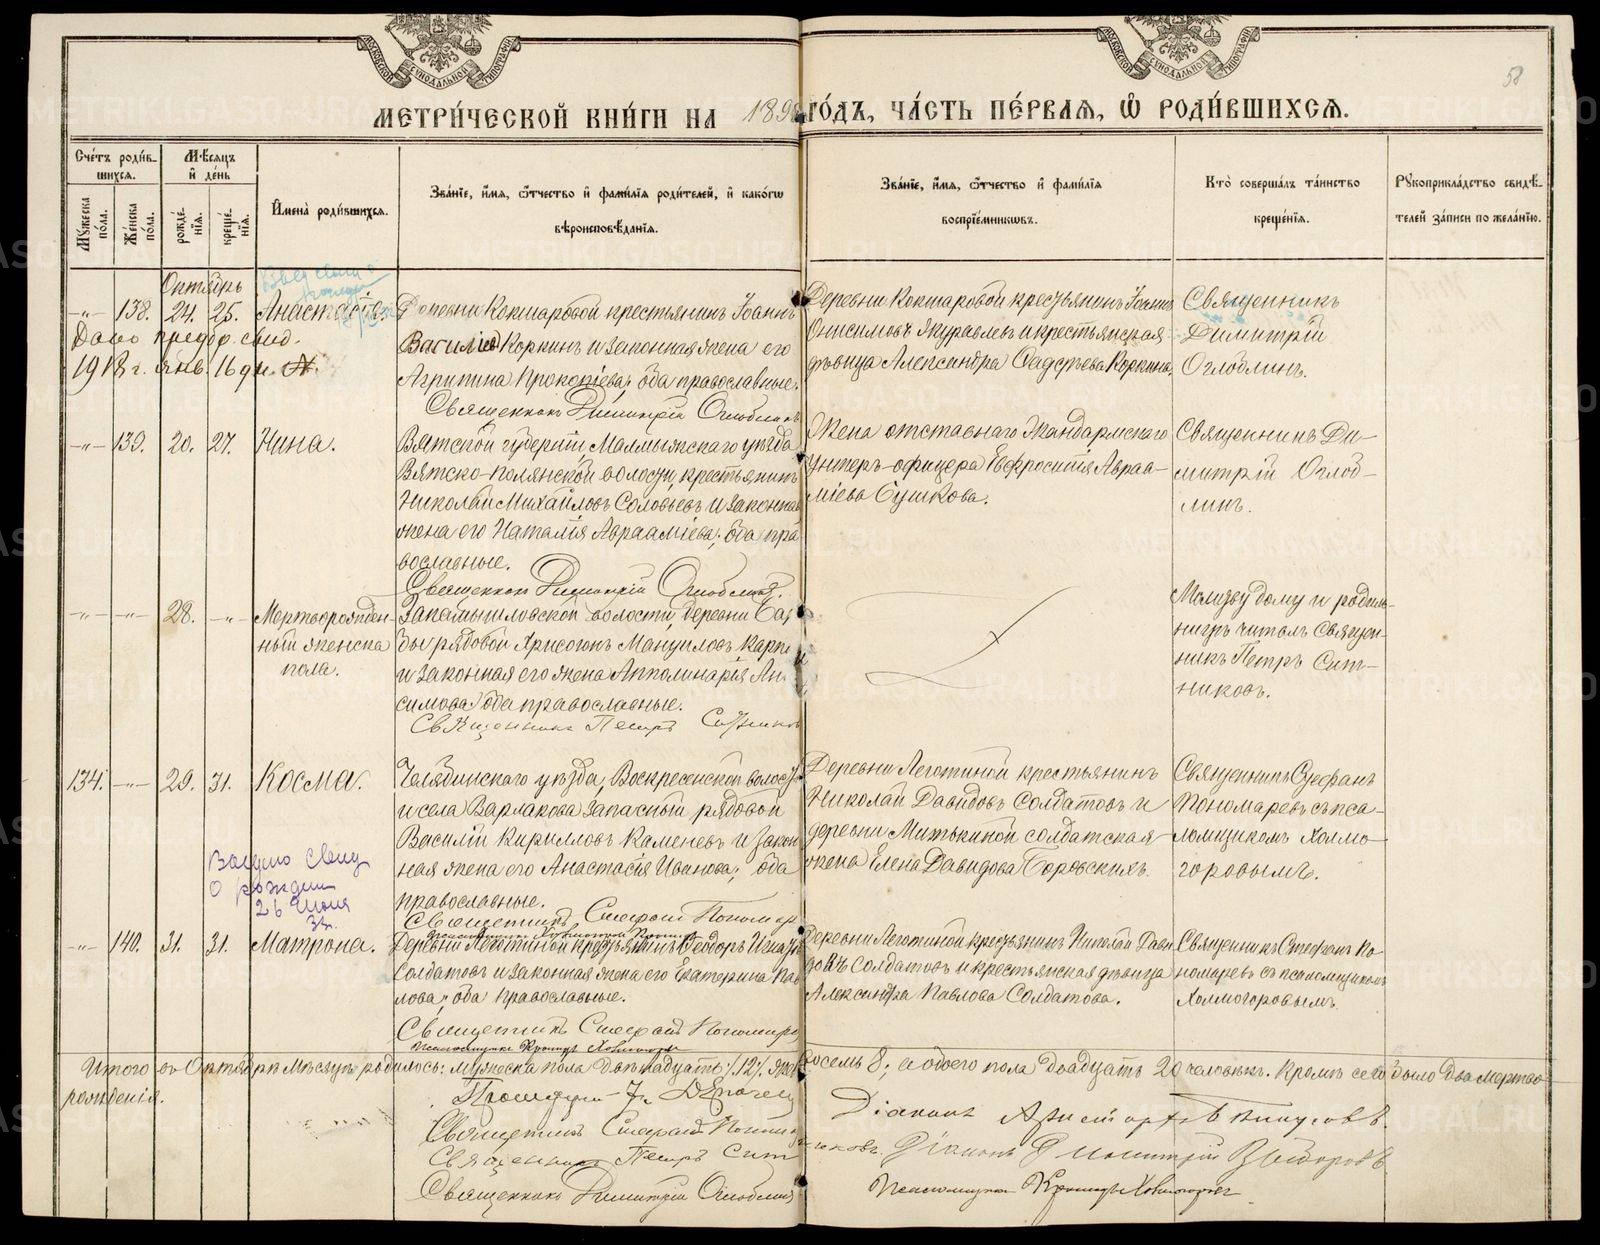 МОСКОВСКОЙ СѴНОДАЛЬНОЙ ТИПОГРАФІИ
МОСКОВСКОЙ СѴНОДАЛЬНОЙ ТИПОГРАФІИ
58
МЕТРИ́ЧЕСКОЙ КНИ́ГИ НА 189 ГО́ДЪ, ЧА́СТЬ ПЕ́РВАЯ, Ѡ҆ РОДИ́ВШИХСЯ.
Сче́тъ роди́в-
шихся.
Мꙋ́жеска по́ла.
Же́нска по́ла.
Мѣ́сяцъ и҆ де́нь
рожде́нїя.
креще́нїя.
И҆мена̀ роди́вшихся.
Зва́нїе, и҆́мя, ѻ҆́тчество и҆ фами́лїя роди́телей, и҆ како́гѡ
вѣроисповѣ́данїя.
Зва́нїе, и҆́мя, ѻ҆́тчество и҆ фами́лїя
воспрїе́мникѡвъ.
Кто̀ соверша́лъ та́инство
креще́нїя.
Рꙋкоприкла́дство свидѣ́-
телей за́писи по жела́нїю.
Октябрь
-"- 138. 24. 25. Анастасія.
Дано предбр. свид.
1918 г. янв. 16 дн.
Деревни Кокшаровой крестьянинъ Іоаннъ
Василіев Коркинъ и законная жена его
Агрипина Прокопіева; оба православные.
Священникъ Димитрій Оглоблинъ
Деревни Кокшаровой крестьянинъ Іоаннъ
Онисимовъ Журавлевъ и крестьянская
дѣвица Александра Фаддѣева Коркина.
Священникъ
Димитрій
Оглоблинъ.
-"- 139. 20. 27. Нина.
Вятской губерніи, Малмыжскаго уѣзда
Вятско-полянской волости, крестьянинъ
Николай Михайловъ Соловьевъ и законная
жена его Наталія Авраамiева; оба пра
вославные.
Священникъ Димитрій Оглоблинъ.
Жена отставнаго Жандармскаго
унтеръ-офицера Евфросинія Авраа-
міева Сушкова.
Священникъ Ди-
митрій Оглоб-
линъ.
-"- -"- 28. -"- Мертворожден-
ный женска
пола.
волости, деревни
рядовой Хрисогонъ Мануиловъ
и законная его жена Апполинарія Ан
симова оба православные.
Священникъ Петръ Ситников
Молитву дому и родиль-
ницѣ читалъ Священ-
никъ Петръ Сит-
никовъ.
134. -"- 29. 31. Косма.
Выдано свид
о рожден
26 июня
Челябинскаго уѣзда, Воскресенской волости
и села Варлакова запасный рядовой
Василій Кирилловъ Каменевъ и закон
ная жена его Анастасія Иванова; оба
православные.
Священникъ Стефанъ Пономар
Деревни Леготиной крестьянинъ
Николай Давидовъ Солдатовъ и
деревни Митькиной солдатская
жена Елена Давидова Боровскихъ.
Священникъ Стефанъ
Пономаревъ съ пса-
ломщикомъ Холмо-
горовымъ.
-"- 140. 31. 31. Матрона.
Деревни Леготиной крестьянинъ Ѳеодоръ Игнать
Солдатовъ и законная жена его Екатерина Пав
лова; оба православные.
Священникъ Стефанъ Пономарев
Псаломщикъ Холмогоров
Деревни Леготиной крестьянинъ Николай Дави
довъ Солдатовъ и крестьянская дѣвица
Александра Павлова Солдатова.
Священникъ Стефанъ По-
номаревъ съ псаломщикомъ
Холмогоровымъ.
Итого въ Октябрѣ мѣсяцѣ родилось: мужеска пола двѣнадцать /12/, жен восемь 8; а обоего пола двадцать 20 человѣкъ. Кромѣ сего было два мертво
рожденія.
Священникъ Стефанъ Поном
Священникъ Петръ Сит никовъ.
Священникъ Димитрій Оглоблин
Діаконъ
Діаконъ Димитрій
Псаломщикъ Холмогоров